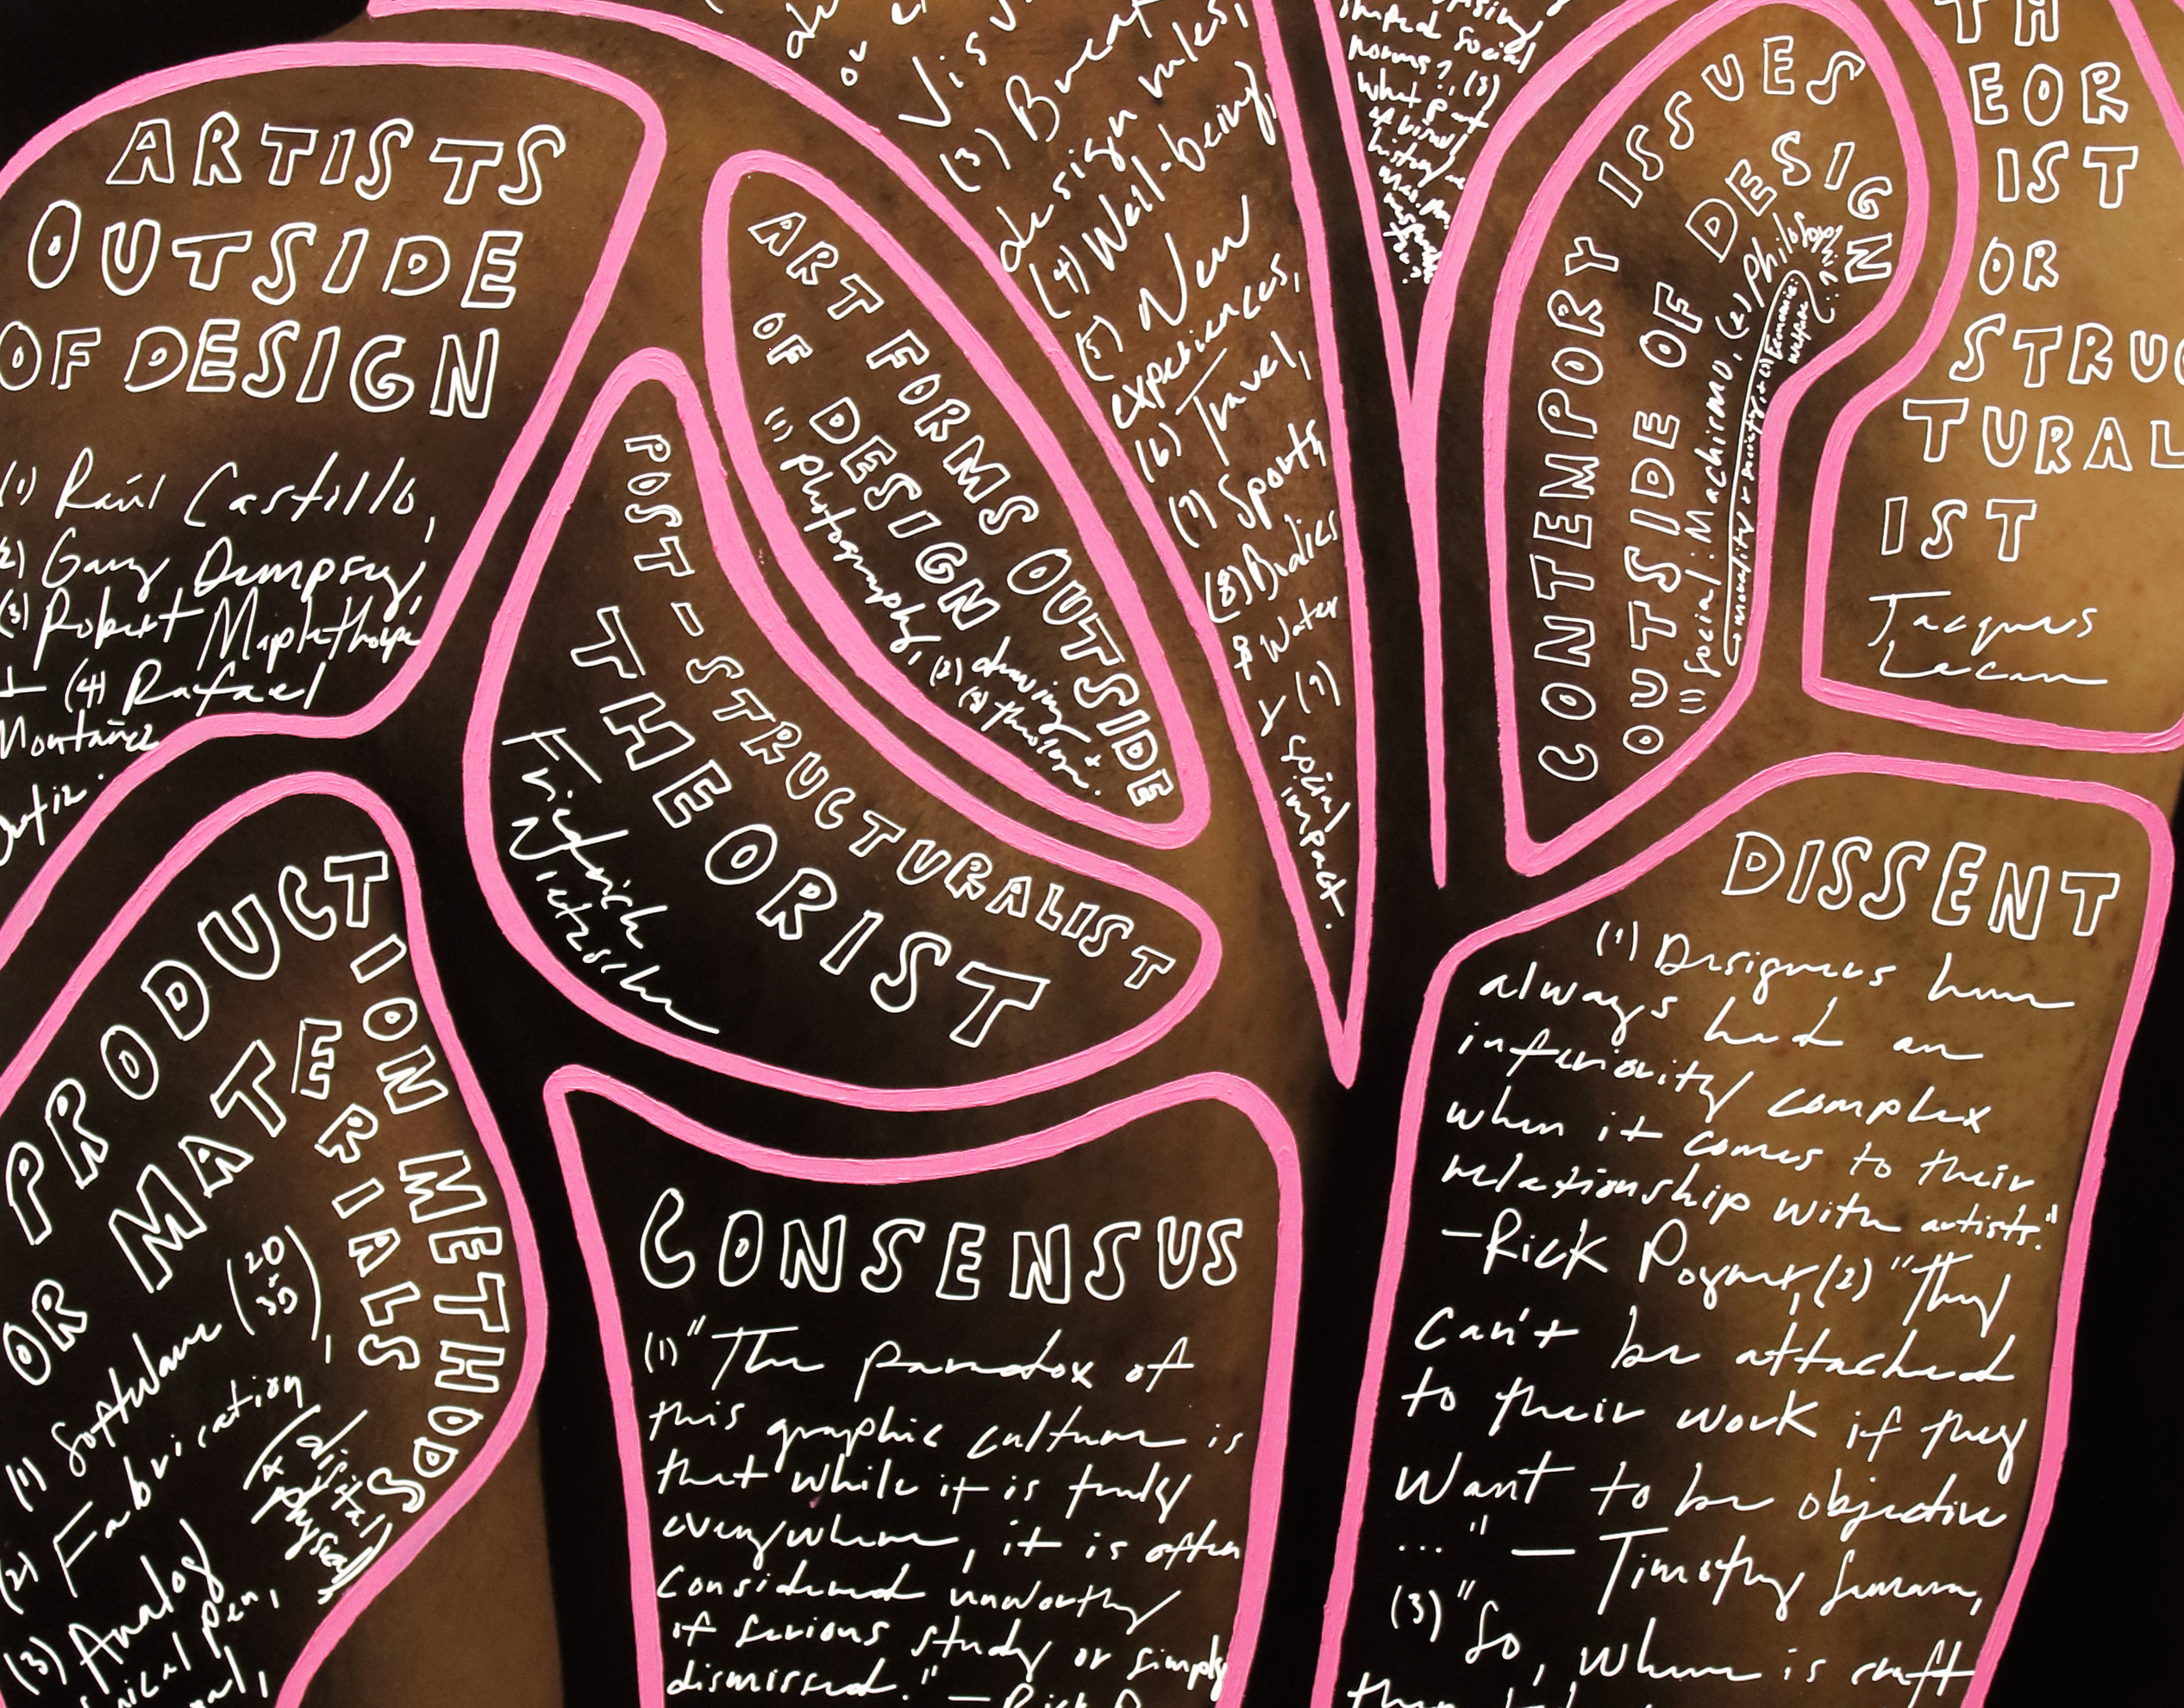 ARTISTS
OUTSIDE
OF DESIGN
(1) Raúl Castillo,
(2) Gary Dempsey,
(3) Robert Mapplethorpe
+ (4) Rafael
Montañez
Ortiz.
PRODUCTION METHODS
OR MATERIALS
(1) Software (2D
3D),
(2) Fabrication
(digital
+ physical)
(3) Analog
pen,
POST-STRUCTURALIST
THEORIST
Friedrich
Nietzsche
ART FORMS OUTSIDE
OF DESIGN
(1) photography, (2) drawing +
(3) theology.
(3) Break
design rules,
(4) Well-being,
(5) New
experiences,
(6) Travel,
(7) Sports,
(8) Bodies
of Water
+ (9)
social
impact.
social
norms?, (3)
what part
of visual
history
CONTEMPORY ISSUES
OUTSIDE OF DESIGN
(1) Social: Machismo, (2) Philosophy
TH
EOR
IST
OR
STRUC
TURAL
IST
Jacques
Lacan
CONSENSUS
(1) "The paradox of
this graphic culture is
that while it is truly
everywhere, it is often
considered unworthy
of serious study or simply
dismissed." — Rick
DISSENT
(1) Designers have
always had an
inferiority complex
when it comes to their
relationship with artists."
—Rick Poynor, (2) "They
can't be attached
to their work if they
want to be objective
..." — Timothy Samara,
(3) "So, where is craft